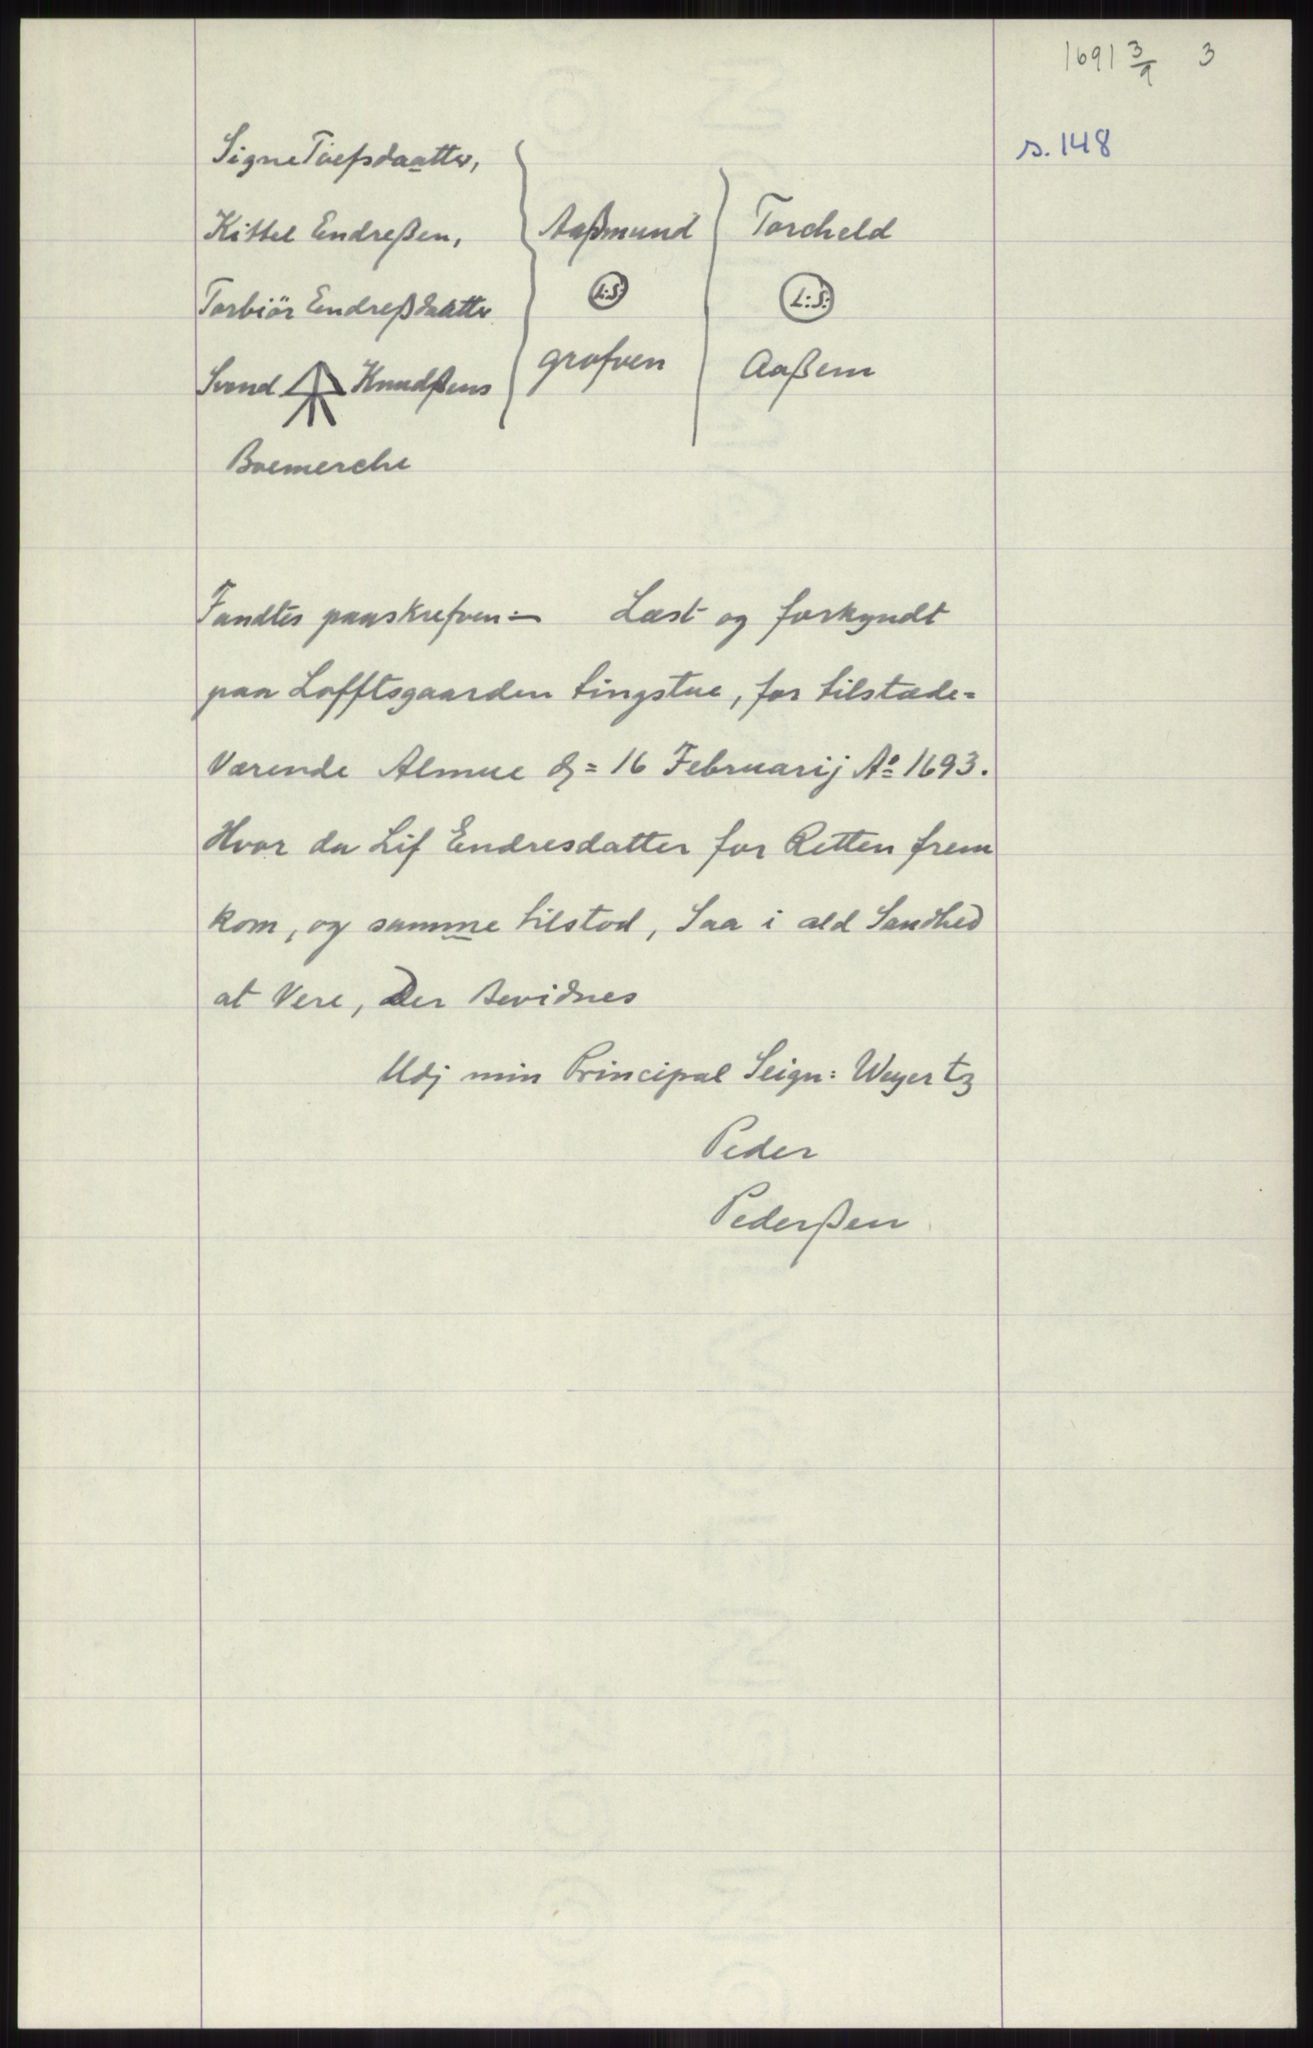 1691 3/9 3
s. 148
Signe Toefsdaatter,
Kittel Endreßen,
Torbiör Endreßdaatter
Svend Knudßens
Boemerche
Aaßmund
L:S:
grofven
Torcheld
L:S:
Aaßem
Fandtes paaskrefven:— Læst og forkyndt
paa Lofftsgaarden tingstue, for tilstæde=
Værende Almue d= 16 Februarij Aº 1693.
Hvor da Lif Endresdatter for Retten frem
kom, og samme tilstod, Saa i ald Sandhed
at Vere, Der Bevidnes
Udj min Principal Seign: Weyertz
Peder
Pederßen